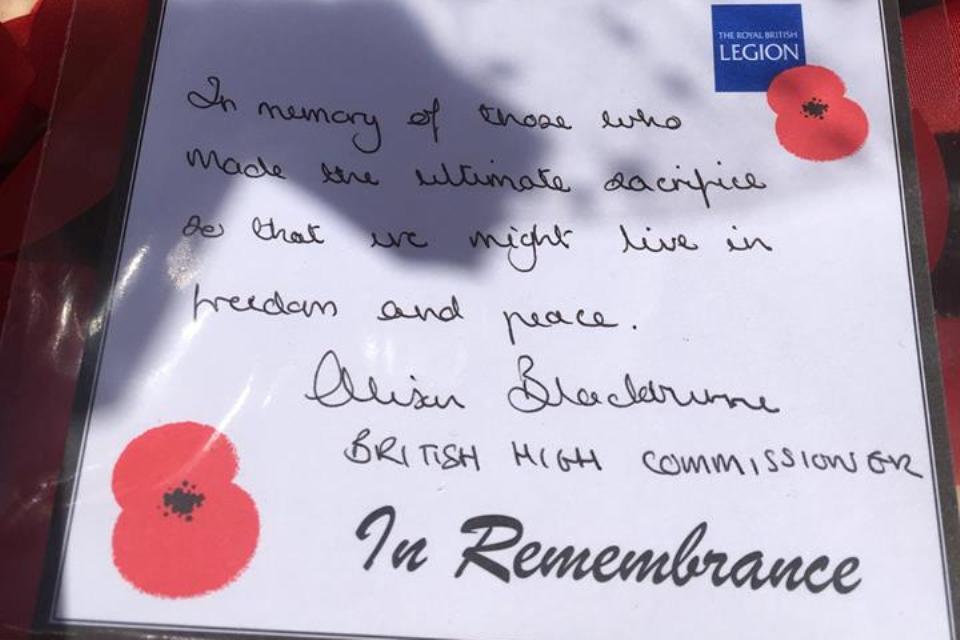 THE ROYAL BRITISH
LEGION
In memory of those who
made the ultimate sacrifice
so that we might live in
freedom and peace.
Alison Blackburne
BRITISH HIGH COMMISSIONER
In Remembrance